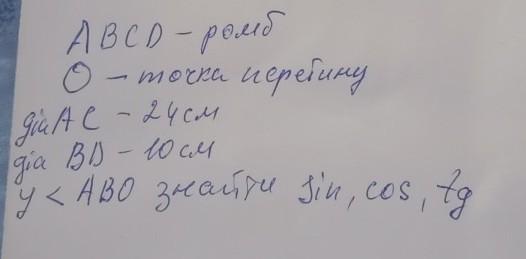 ABCD - ромб
O - точка перетину
діа AC - 24 см
діа BD - 10 см
у < ABO знайти sin, cos, tg